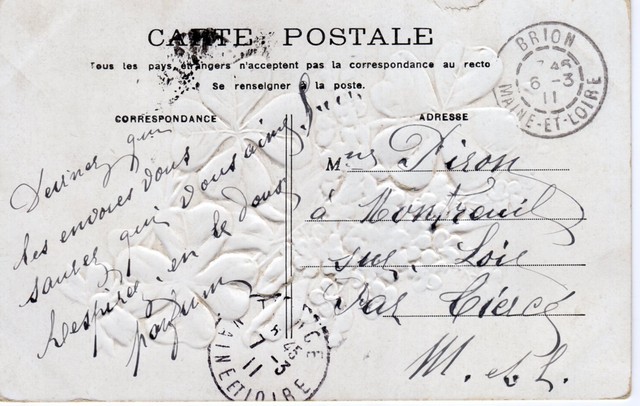 CARTE POSTALE
Tous les pays étrangers n'acceptent pas la correspondance au recto
Se renseigner à la poste.
CORRESPONDANCE
ADRESSE
BRION
7 45
6 -3
11
MAINE-ET-LOIRE
Devinez qui
les envoies vous
saurez qui vous aime
Respirez en le doux
parfum
Piron
à Montreuil
sur Loir
Par Tiercé
M. et L.
7 -3
11
MAINE ET LOIRE